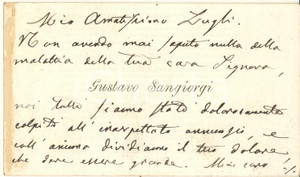 Mio Amatissimo Zugli.
Non avendo mai saputo nulla della
malattia della tua cara Signora,
Gustavo Sangiorgi
noi tutti siamo stati dolorosamente
colpiti all' inaspettato annunzio, e
coll' animo dividiamo il tuo dolore,
che deve essere grande. Mio caro